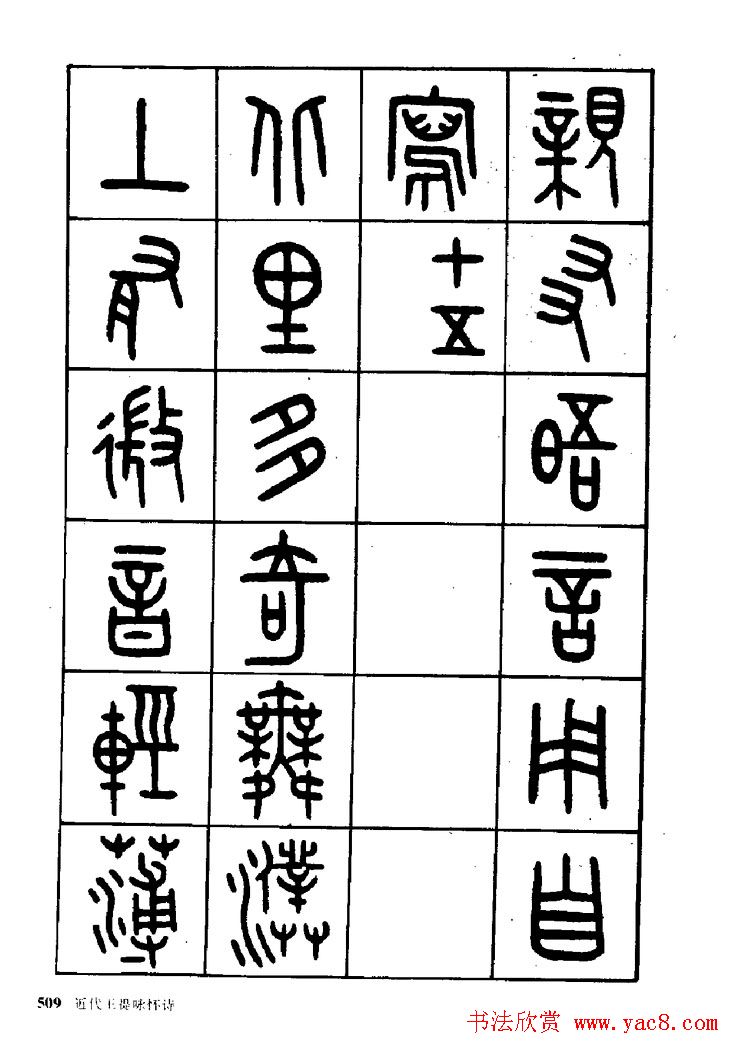 親友晤言用自
寫十五
北里多奇舞濮
上有微音輕薄
509 近代王禔咏怀诗
书法欣赏 www.yac8.com